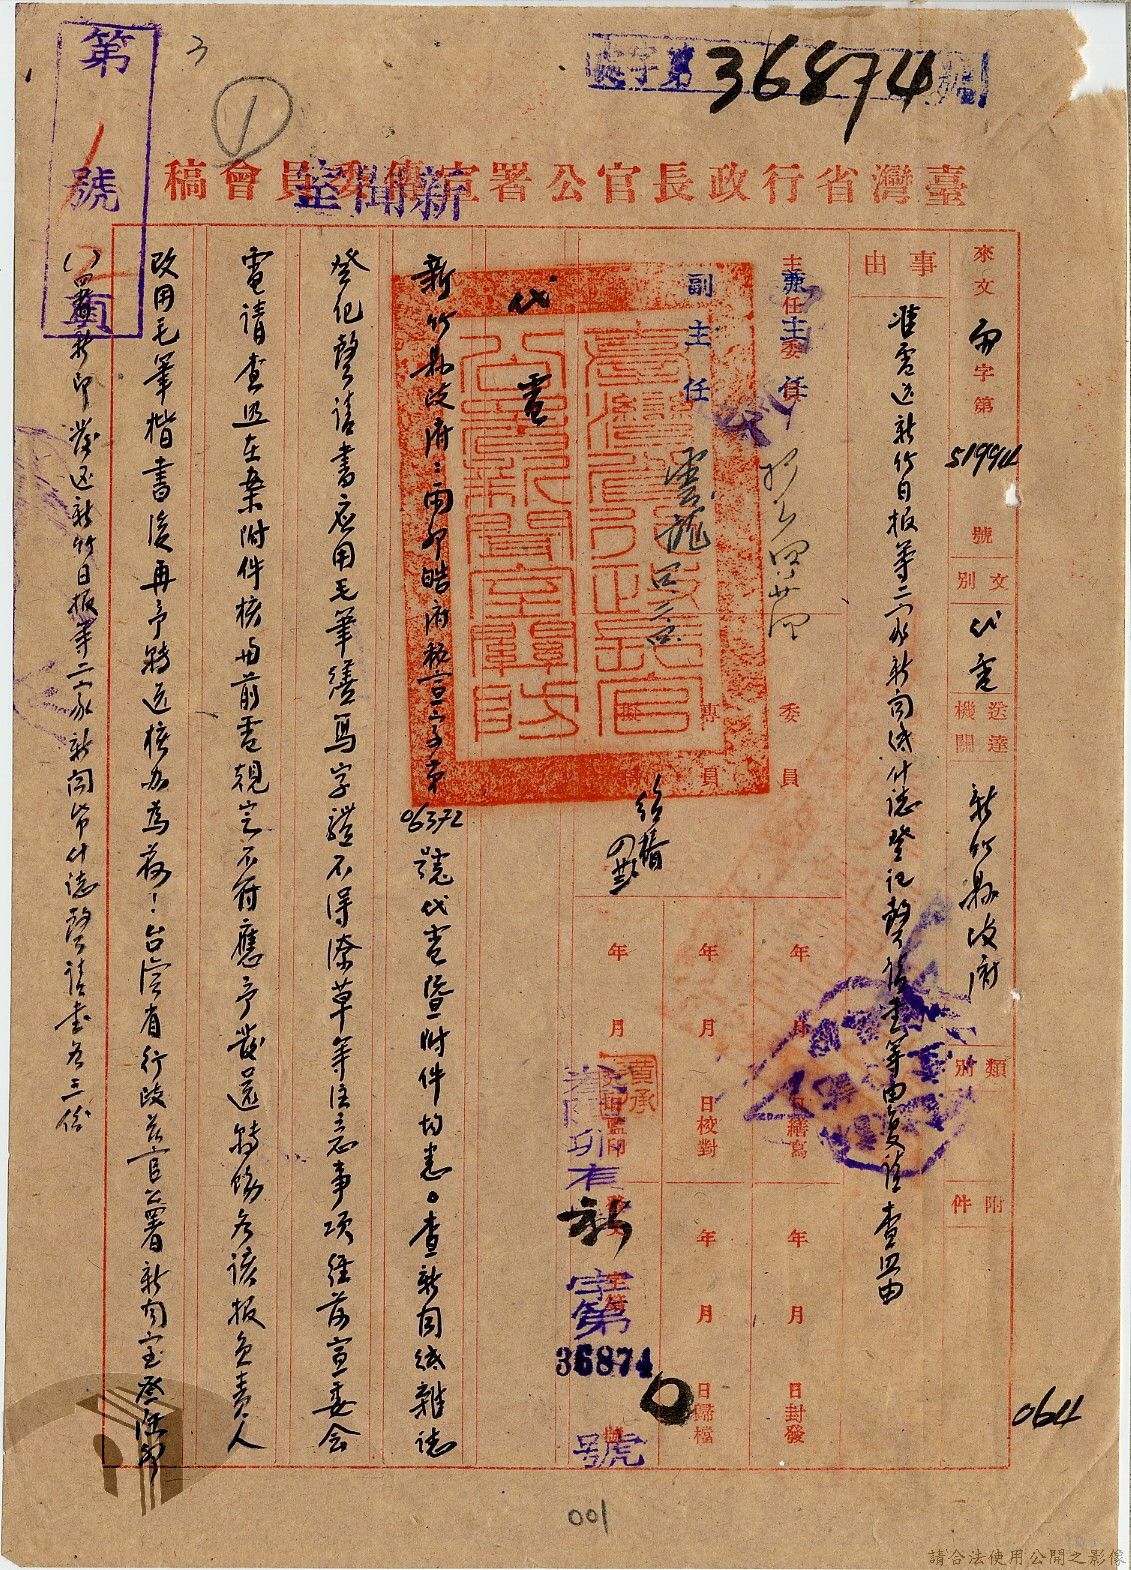 第1號
3
①
署字第36874號
臺灣省行政長官公署宣傳委員會稿
新聞室
來文 字第51994號
文別 代電
送達機關 新竹縣政府
類別
附件
事由 准電送新竹日報等二家新聞紙什誌登記聲請書等由復請查照由
兼主任
主任委員
副主任
委員
專員
年月日繕寫
年月日校對
年月日監印
年月日封發
年月日歸檔
新字第36874號
臺灣省行政長官公署新聞室關防
代電
新竹縣政府：
府秘宣字第06372號代電暨附件均悉。查新聞紙雜誌
登記聲請書應用毛筆繕寫字體不得潦草等注意事項經前宣委會
電請查照在案附件核與前電規定不符應予發還轉飭各該報負責人
改用毛筆楷書後再予轉送核辦為荷！台灣省行政長官公署新聞室
發還新竹日報等二家新聞紙什誌聲請書各三份
064
001
請合法使用公開之影像